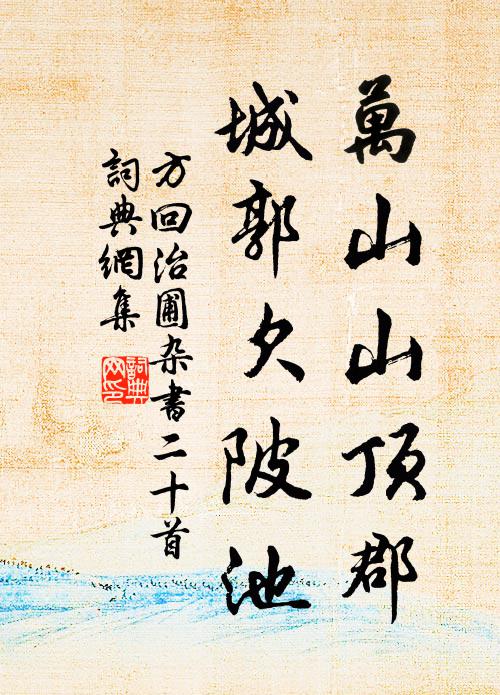 萬山山頂郡
城郭欠陂池
方回治圃杂書二十首
詞典網集
詞典网印